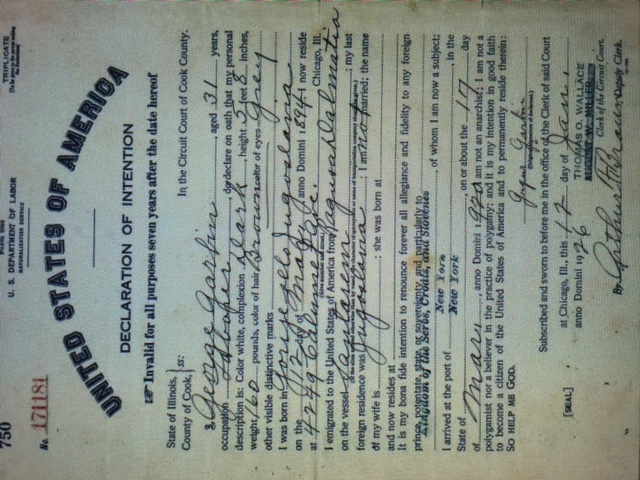 TRIPLICATE
U. S. DEPARTMENT OF LABOR
NATURALIZATION SERVICE
750
No. 171181
UNITED STATES OF AMERICA
DECLARATION OF INTENTION
☞ Invalid for all purposes seven years after the date hereof
State of Illinois, } ss:
County of Cook, In the Circuit Court of Cook County.
I, George Garbin, aged 31 years,
occupation, do declare on oath that my personal
description is: Color white, complexion Dark, height 5 feet 8 inches,
weight 160 pounds, color of hair Brown, color of eyes Grey
other visible distinctive marks
I was born in Jugoslavia
on the 12 day of May, anno Domini 1894; I now reside
at 4249 Calumet Ave., Chicago, Ill.
I emigrated to the United States of America from Dalmatia
on the vessel; my last
foreign residence was Jugoslavia; I am not married; the name
of my wife is; she was born at
and now resides at
It is my bona fide intention to renounce forever all allegiance and fidelity to any foreign
prince, potentate, state, or sovereignty, and particularly to
Kingdom of the Serbs, Croats, and Slovenes, of whom I am now a subject;
I arrived at the port of New York, in the
State of New York, on or about the 17 day
of Mar., anno Domini; I am not an anarchist; I am not a
polygamist nor a believer in the practice of polygamy; and it is my intention in good faith
to become a citizen of the United States of America and to permanently reside therein:
SO HELP ME GOD.
Subscribed and sworn to before me in the office of the Clerk of said Court
at Chicago, Ill., this 12 day of Jan.,
anno Domini 1926
[SEAL]
THOMAS O. WALLACE
Clerk of the Circuit Court.
By Arthur, Deputy Clerk.